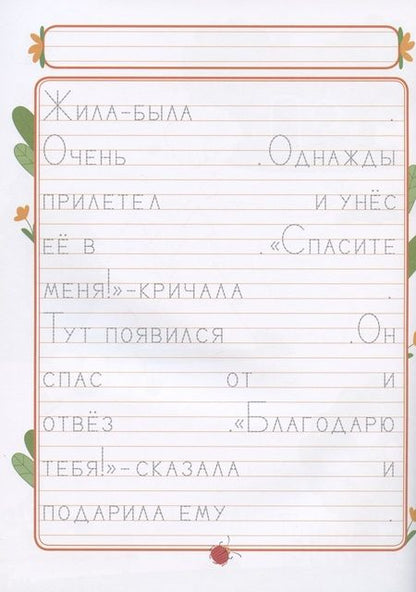 Жила-была .
Очень . Однажды
прилетел и унёс
её в . «Спасите
меня!»-кричала .
Тут появился . Он
спас от и
отвёз . «Благодарю
тебя!»-сказала и
подарила ему .